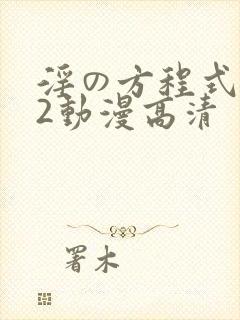 淫の方程式
2動漫高清
署木